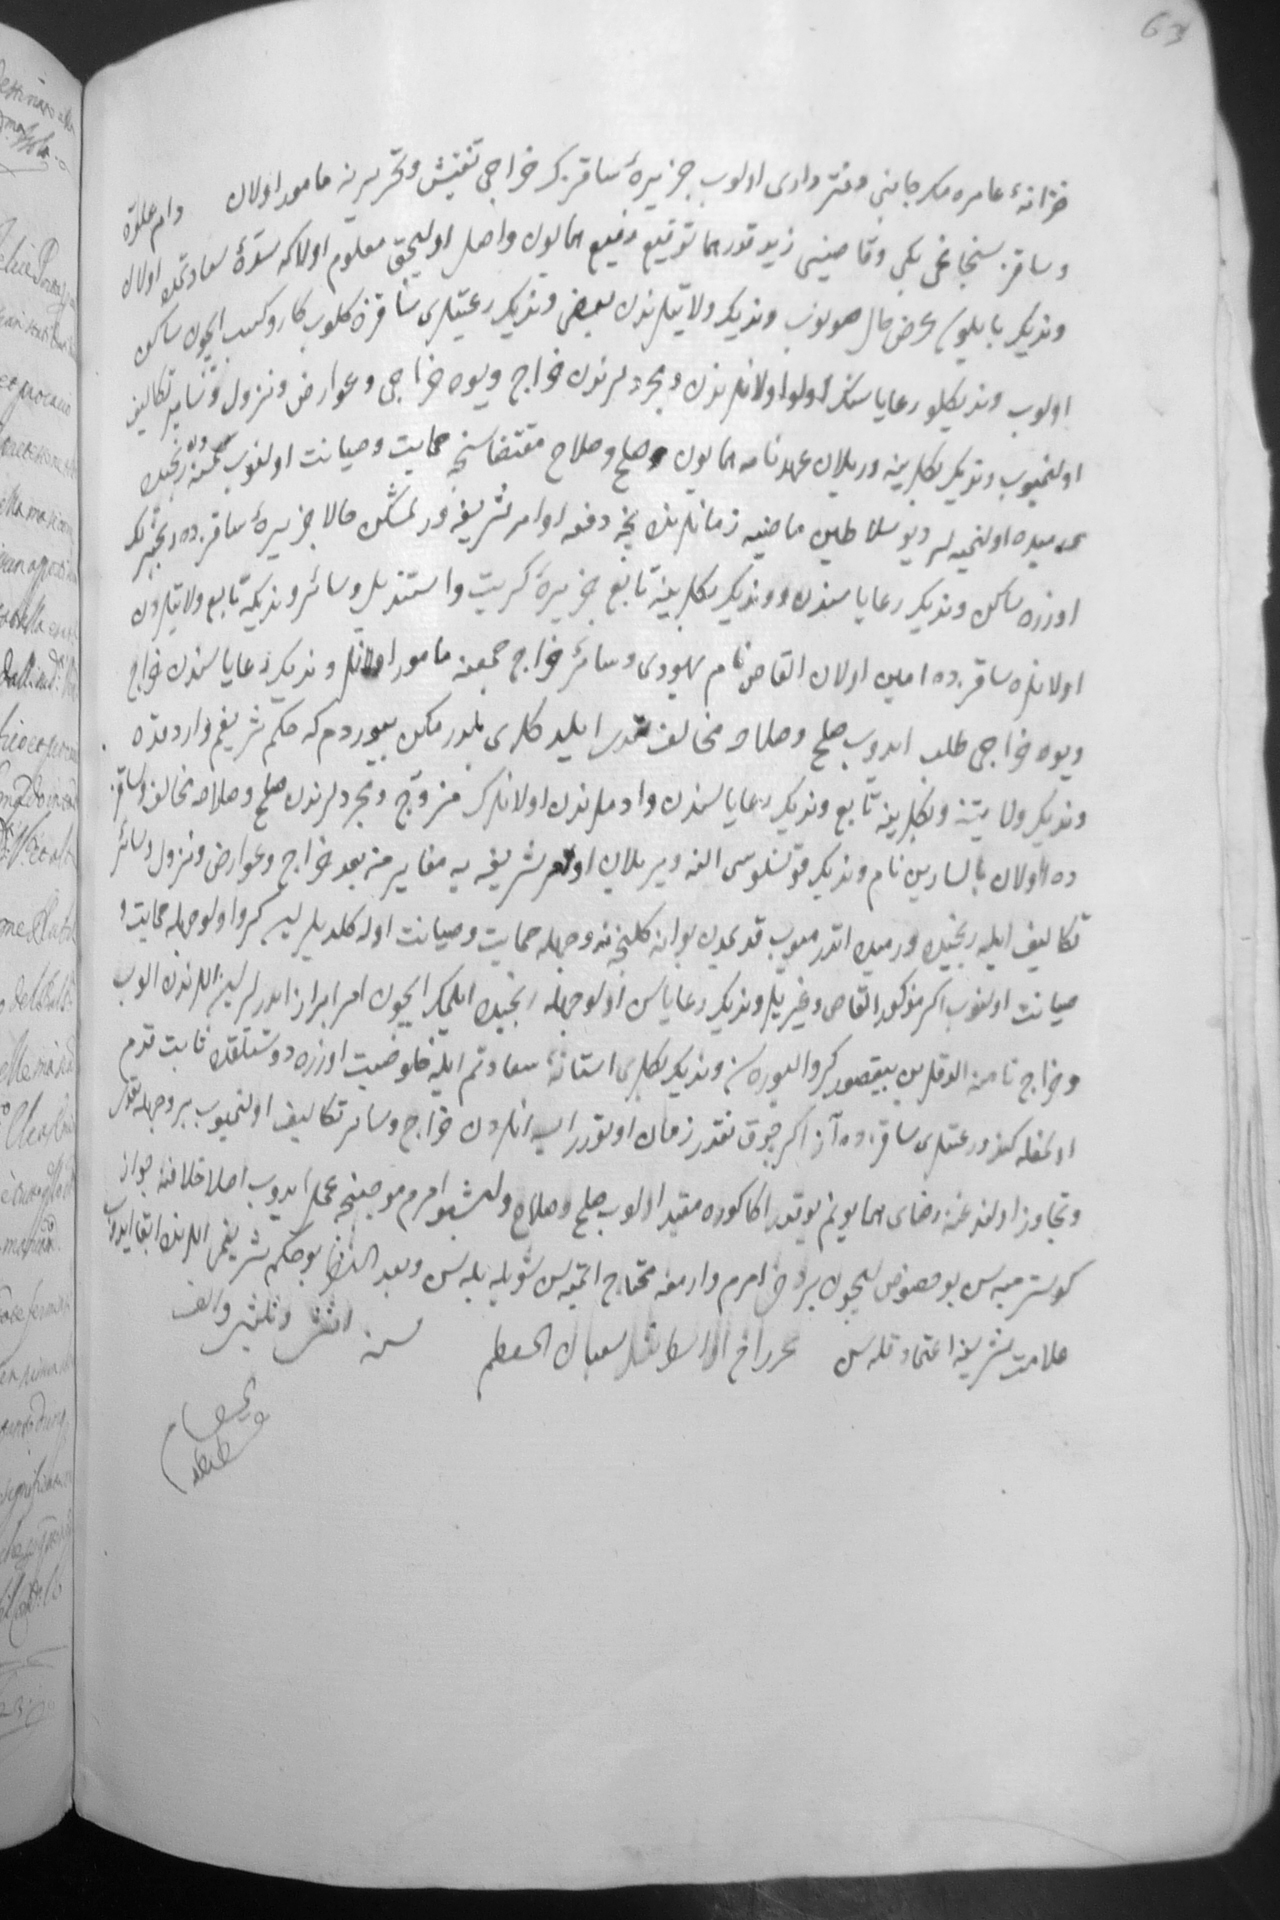 63
خزانۀ عامره مك جانبى دفتردارى اولوب جزيرۀ ساقزك خراجى تفتيش و تحريرينه مامور اولان دام علوه
و ساقز سنجاغى بكى و قاضيسى زيد قدرهما توقيع رفيع همايون واصل اوليجق معلوم اولا كه سدۀ سعادتمده اولان
ونديك بايلوسى عرض حال صونوب ونديك ولايتلرندن بعضى ونديك رعيتلرى ساقزه كلوب كار و كسب ايچون ساكن
اولوب ونديكلو رعاياسندن اولوا اولانلرندن و مجردلرندن خراج و يوه خراجى و عوارض و نزول و ساير تكاليف
اولنميوب ونديك بكلرينه ويريلان عهدنامه همايون و صلح و صلاح مقتضاسنجه حمايت و صيانت اولنوب كمسنه رنجيده
و رميده اولنميه لر ديو سلاطين ماضيه زمانلرنده نچه دفعه اوامر شريفه ويرلمشكن حالا جزيرۀ ساقزده رنجبرلك
اوزره ساكن ونديك رعاياسندن و ونديك بكلرينه تابع جزيرۀ كريت و استنديل و سائر ونديكه تابع ولايتلردن
اولانلره ساقزده امين اولان القاص نام يهودى و سائر خراج جمعنه مامور اولانلر ونديك رعاياسندن خراج
و يوه خراجى طلب ايدوب صلح و صلاحه مخالف تعدى ايلدكلرى بلدرمكين بيوردم كه حكم شريفم واردقده
ونديك ولايتنه و بكلرينه تابع ونديك رعاياسندن و ادملرندن اولانلرك متزوج و مجردلرندن صلح و صلاحه مخالف و ساقز
ده اولان بالسارين نام ونديك قونسلوسى النه ويريلان اوامر شريفه يه مغاير من بعد خراج و عوارض و نزول و سائر
تكاليف ايله رنجيده و رميده اتدرميوب قديمدن بو انه كلنجه نه وجهله حمايت و صيانت اوله كلديلر ايسه كرو اولوجهله حمايت و
صيانت اولنوب اكر مذكور القاص و غيريلر ونديك رعاياسن اولوجهله رنجيده ايلمك ايچون امر ابراز ايدرلر ايسه اللرندن الوب
و خراج نامنه الدقلرين بيقصور كرو اليوره سن ونديك بكلرى استانۀ سعادتم ايله خلوصيت اوزره دوستلقده ثابت قدم
اولمغله كندو رعيتلرى ساقزده آز اكر چوق نقدر زمان اوتورر ايسه انلردن خراج و ساير تكاليف اولنميوب بر وجهله تعدى
و تجاوز اولندغنه رضاى همايونم يوقدر اكا كوره مقيد اولوب صلح و صلاح و اشبو امرم موجبنجه عمل ايدوب اصلا خلافنه جواز
كوسترميه سن بو خصوص ايچون بر دخى امرم وارمغه محتاج اتميه سن شويله بله سن و بعد النظر بو حكم شريفمى اللرنده ابقا ايدوب
علامت شريفه اعتماد قله سن تحريرا فى اواسط شهر شعبان المعظم سنه اثنين و ثلثين و الف